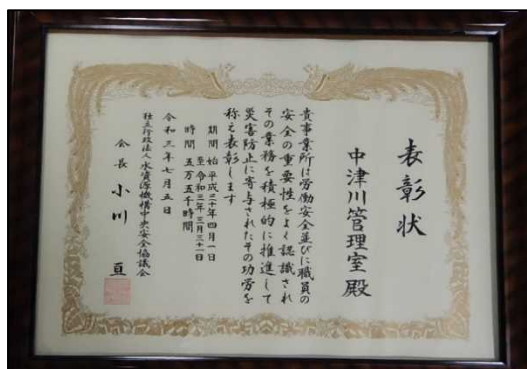 表彰状
中津川管理室殿
貴事業所は労働安全並びに職員の
安全の重要性をよく認識され
その業務を積極的に推進して
災害防止に寄与されたその功労を
称え表彰します
期間 始 平成三十年四月一日
至 令和三年三月三十一日
時間 五万五千時間
令和三年七月五日
独立行政法人水資源機構中央安全協議会
会長 小川 亘